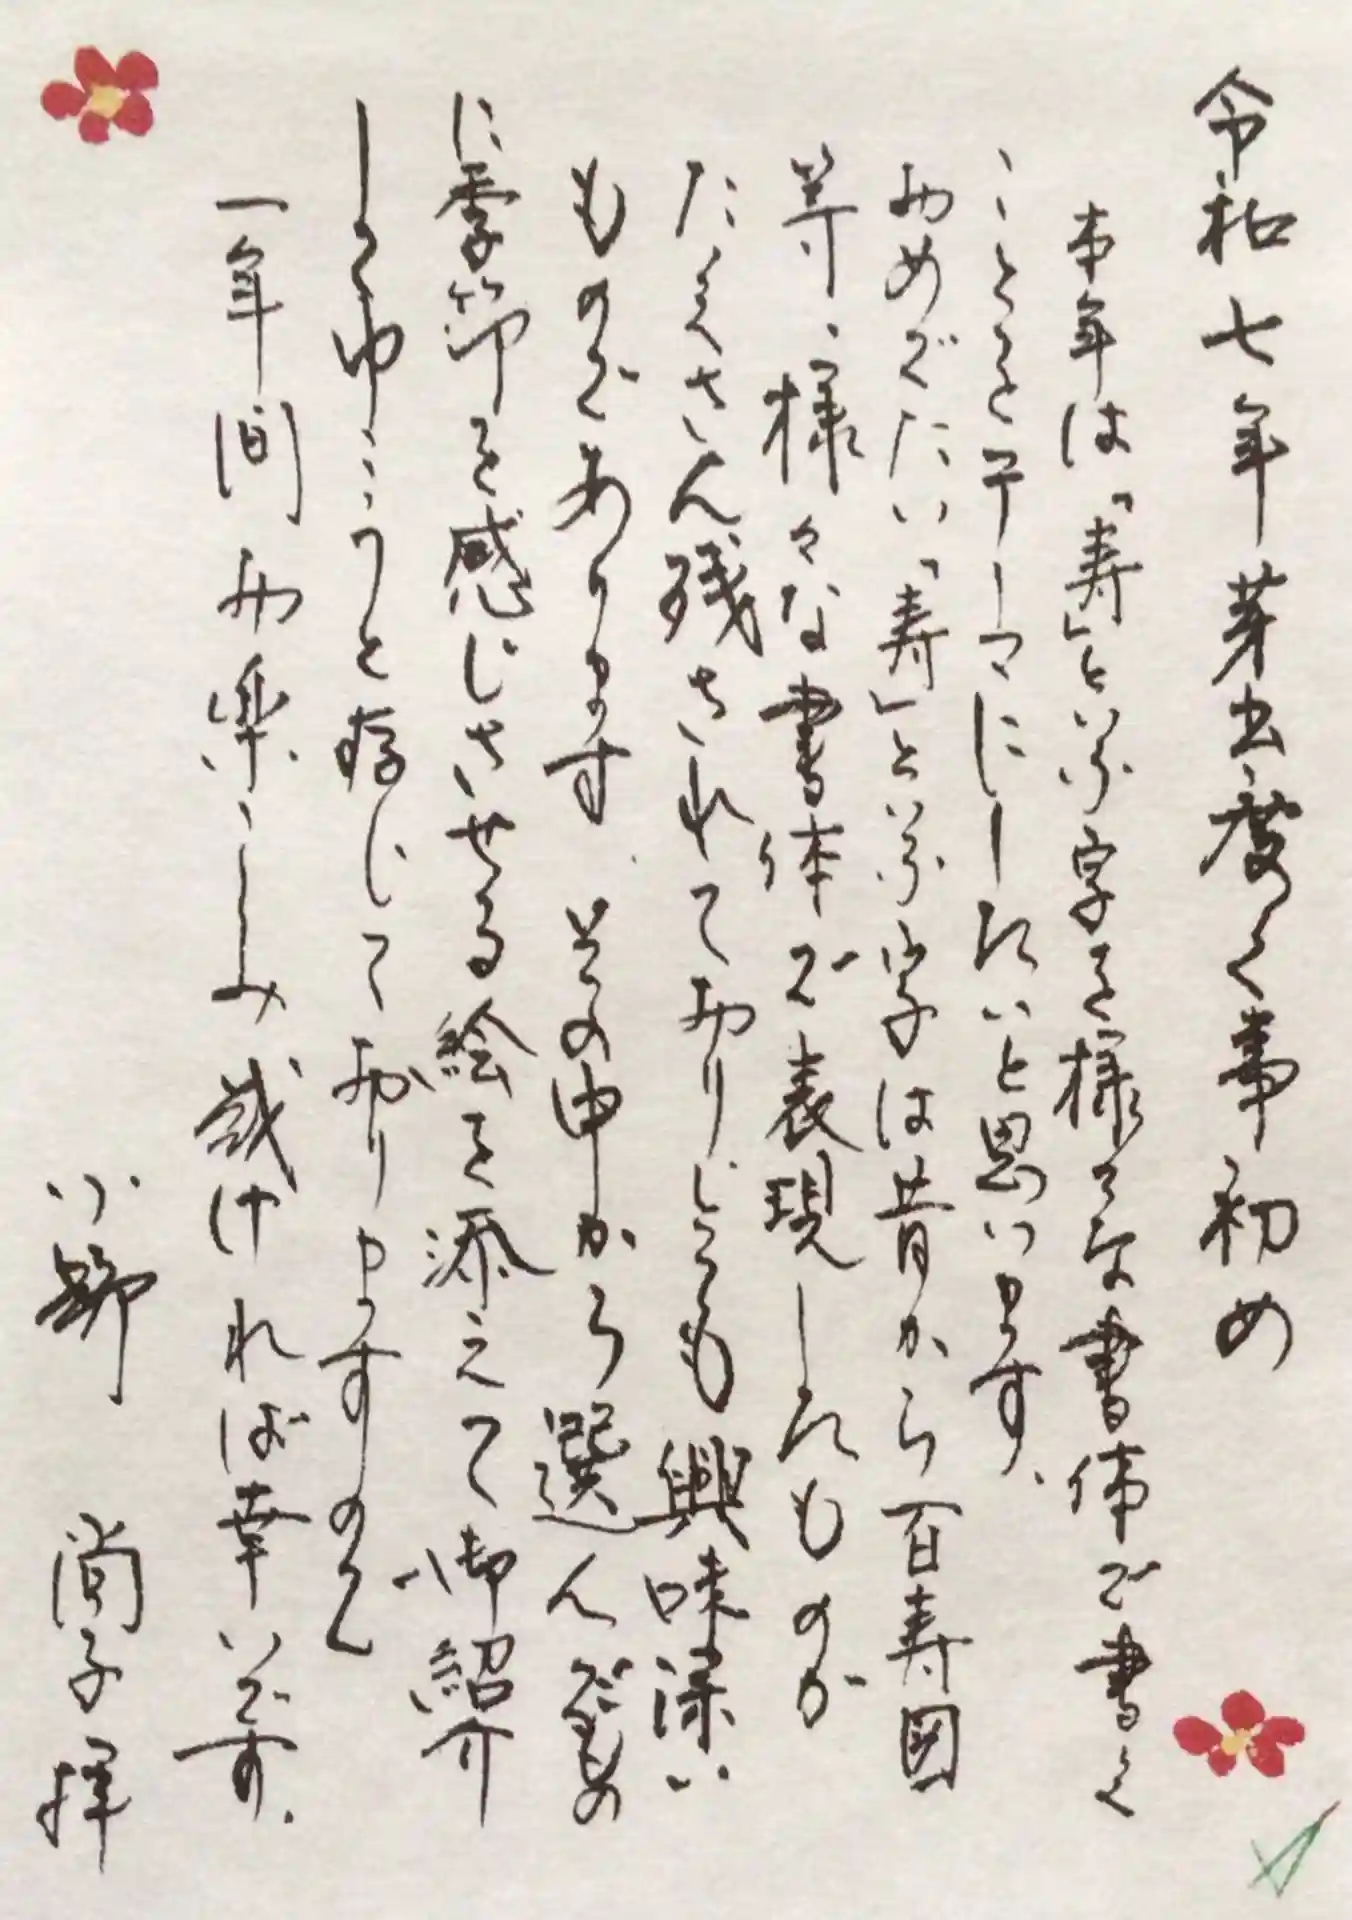 令和七年芽出度く事初め
本年は「寿」といふ字を様々な書体で書く
ことをテーマにしたいと思います、
おめでたい「寿」といふ字は昔から百寿図
等、様々な書体で表現したものが
たくさん残されておりとても興味深い
ものであります、その中から選んだもの
に季節を感じさせる絵を添えて御紹介
してゆこうと存じておりますので
一年間お楽しみ戴ければ幸いです、
尚子拝